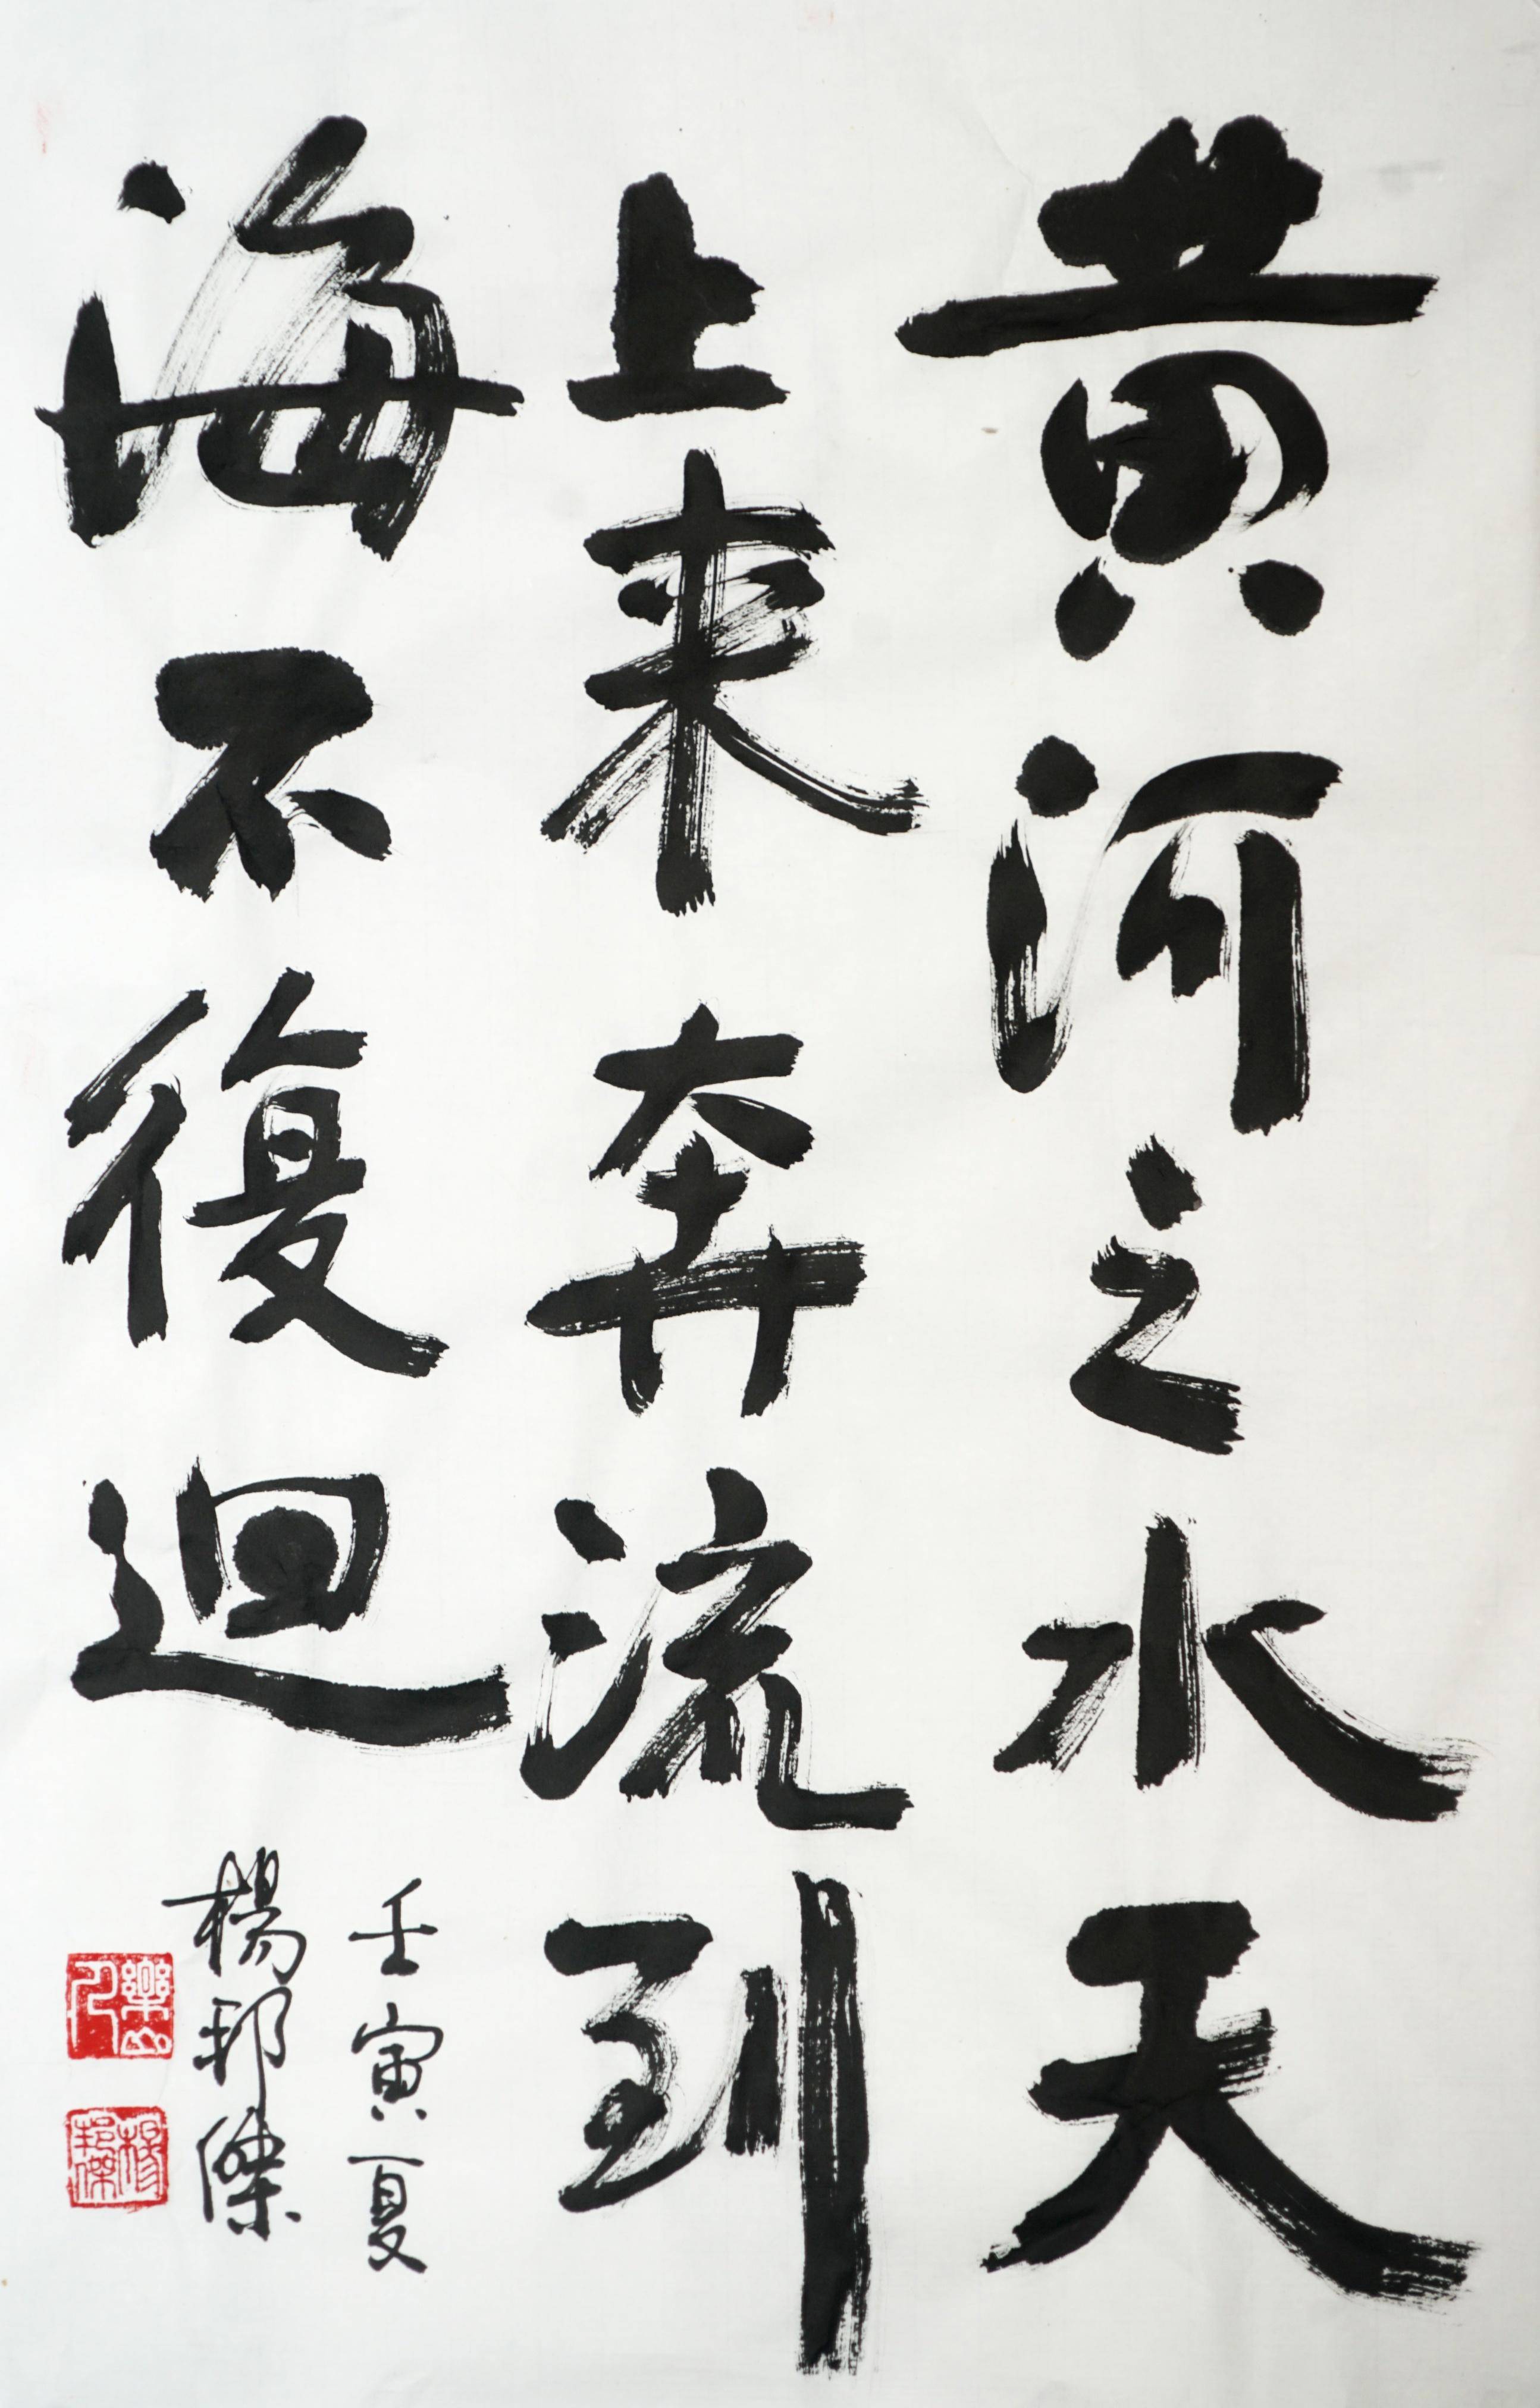 黄河之水天
上来奔流到
海不復迴
壬寅夏
楊邦傑
樂山人
楊邦傑